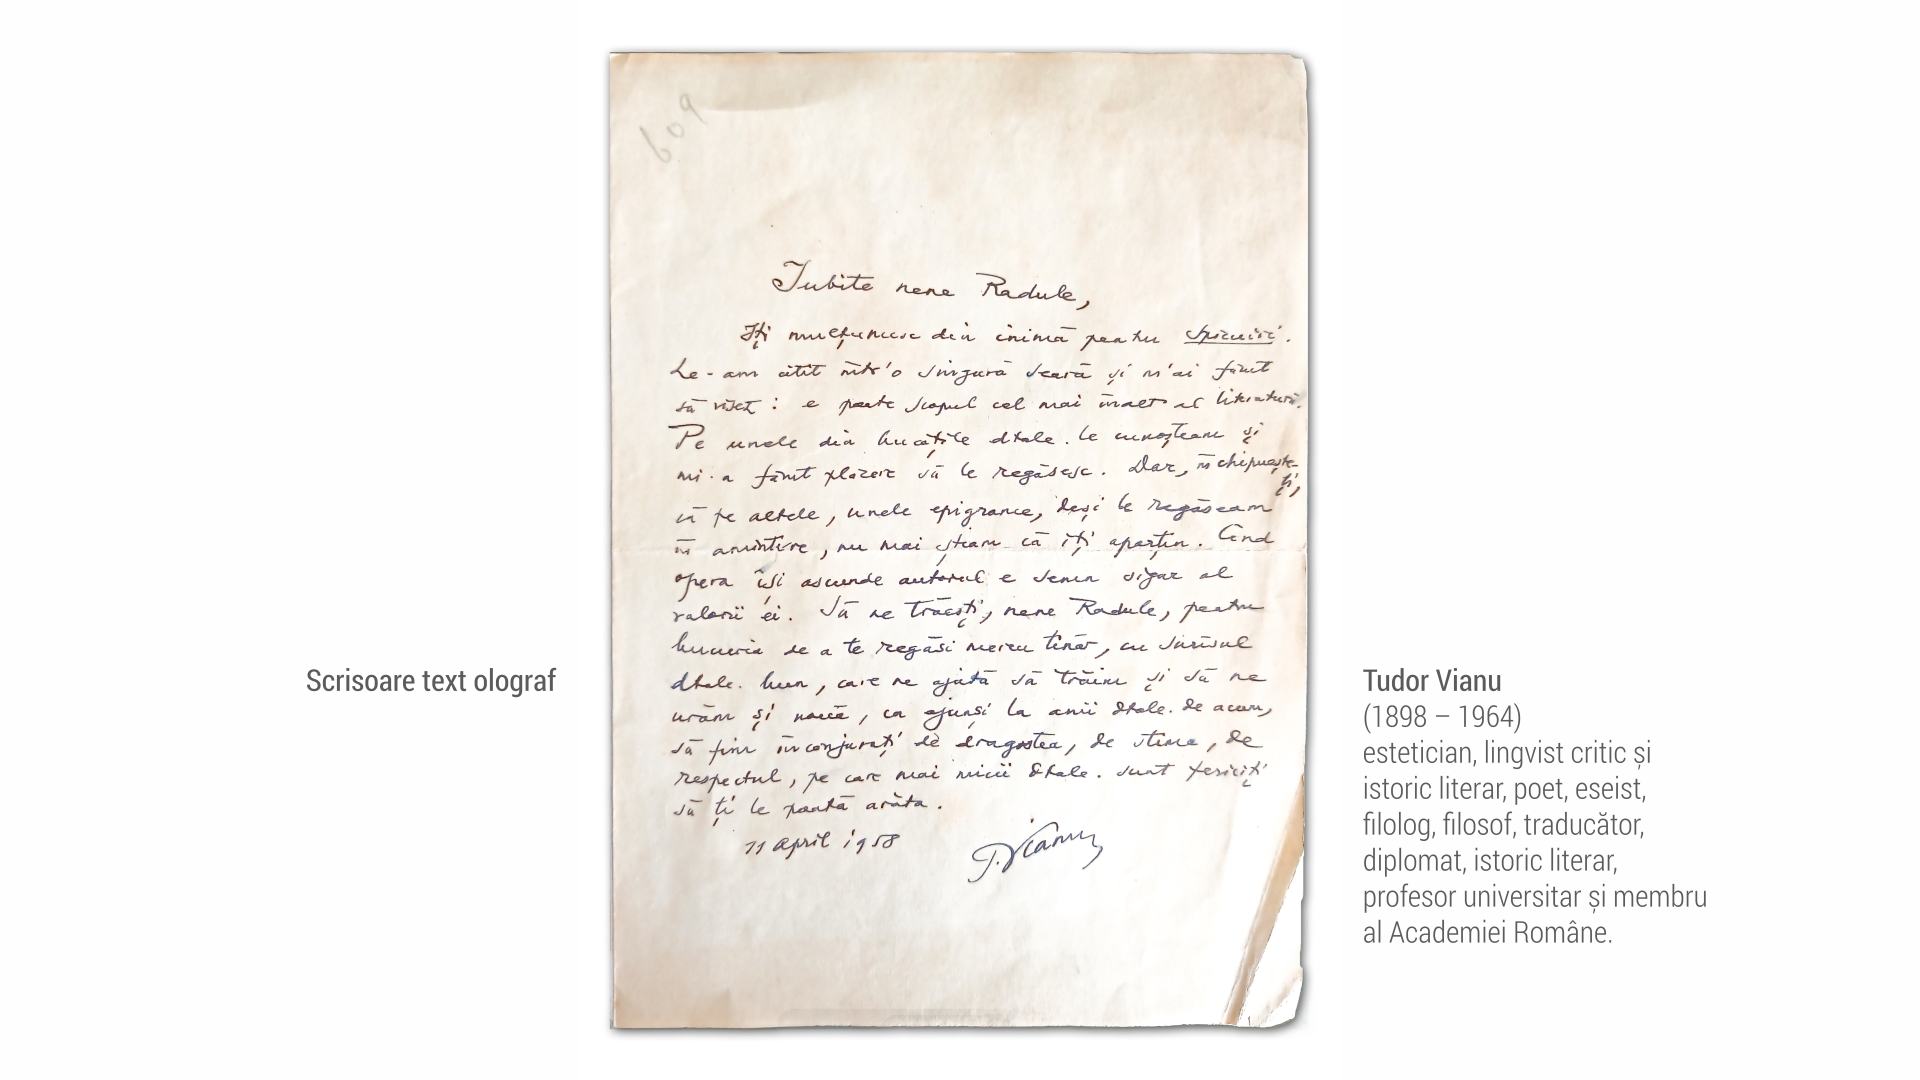 609
Iubite nene Radule,
Îți mulțumesc din inimă pentru Spicuiri.
Le-am citit într'o singură seară și m'ai făcut
să visez: e poate scopul cel mai înalt al literaturii.
Pe unele din bucățile dtale. le cunoșteam și
mi-a făcut plăcere să le regăsesc. Dar, închipuește-
ți,
că pe altele, unele epigrame, deși le regăseam
în amintire, nu mai știam că îți aparțin. Cînd
opera își ascunde autorul e semn sigur al
valorii ei. Să ne trăești, nene Radule, pentru
bucuria de a te regăsi mereu tînăr, cu surîsul
dtale. bun, care ne ajută să trăim și să ne
urăm și nouă, ca ajunși la anii dtale. de acum,
să fim înconjurați de dragostea, de stima, de
respectul, pe care mai micii dtale. sunt fericiți
să ți le poată arăta.
11 April 1958
T. Vianu
Scrisoare text olograf
Tudor Vianu
(1898 – 1964)
estetician, lingvist critic și
istoric literar, poet, eseist,
filolog, filosof, traducător,
diplomat, istoric literar,
profesor universitar și membru
al Academiei Române.